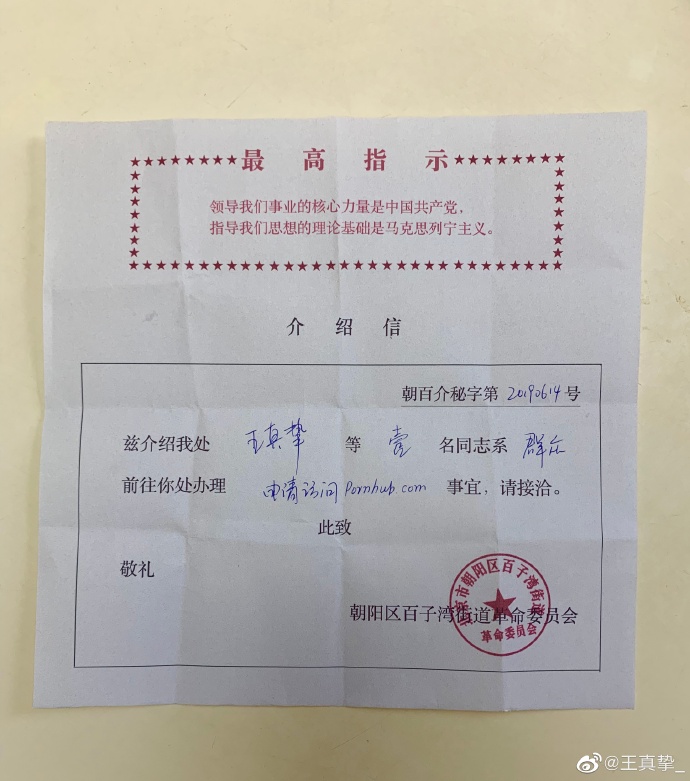 最高指示
领导我们事业的核心力量是中国共产党,
指导我们思想的理论基础是马克思列宁主义。
介绍信
朝百介秘字第 20190614 号
兹介绍我处 王真挚 等 壹 名同志系 群众
前往你处办理 申请访问 Pornhub.com 事宜,请接洽。
此致
敬礼
朝阳区百子湾街道革命委员会
北京市朝阳区百子湾街道
革命委员会
@王真挚_